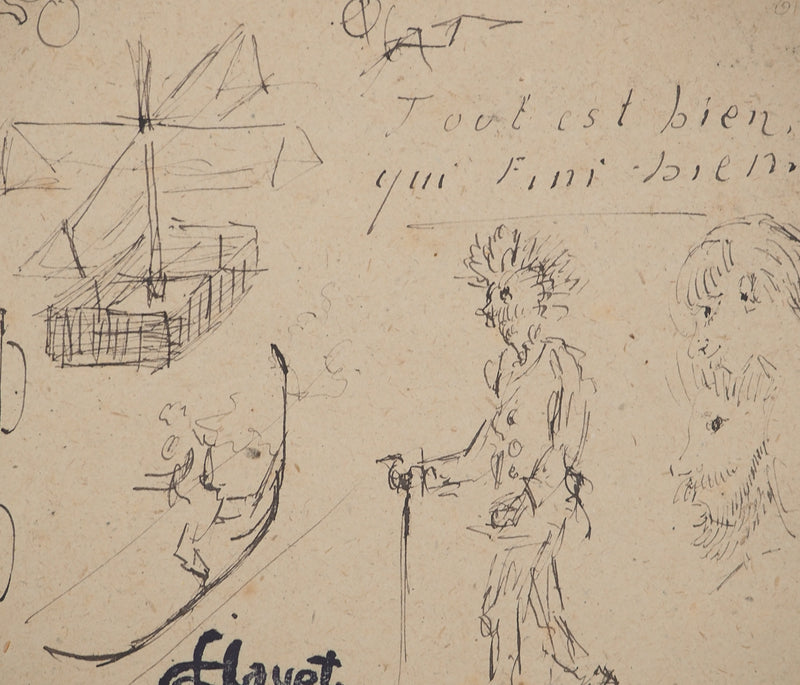 Tout est bien,
qui Fini bien
Hayet